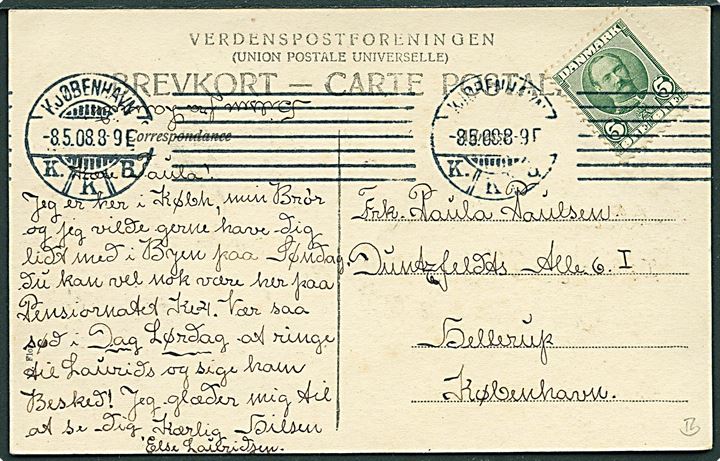 VERDENSPOSTFORENINGEN
(UNION POSTALE UNIVERSELLE)
BREVKORT — CARTE POSTALE
KJØBENHAVN
-8.5.08.8-9E
K. K. B.
KJØBENHAVN
-8.5.08.8-9E
K. K. B.
DANMARK
5 ØRE 5
Correspondance
Kære Paula!
Jeg er her i Købh, min Brør
og jeg vilde gerne have dig
lidt med i Byen paa Søndag.
du kan vel nok være her paa
Pensionatet Kl 4. Vær saa
sød i Dag Lørdag at ringe
til Laurids og sige ham
Besked! Jeg glæder mig til
at se dig Kærlig Hilsen
Else Lauridsen.
Frk. Paula Paulsen
Duntzfeldts Alle 6. I
Hellerup
København.